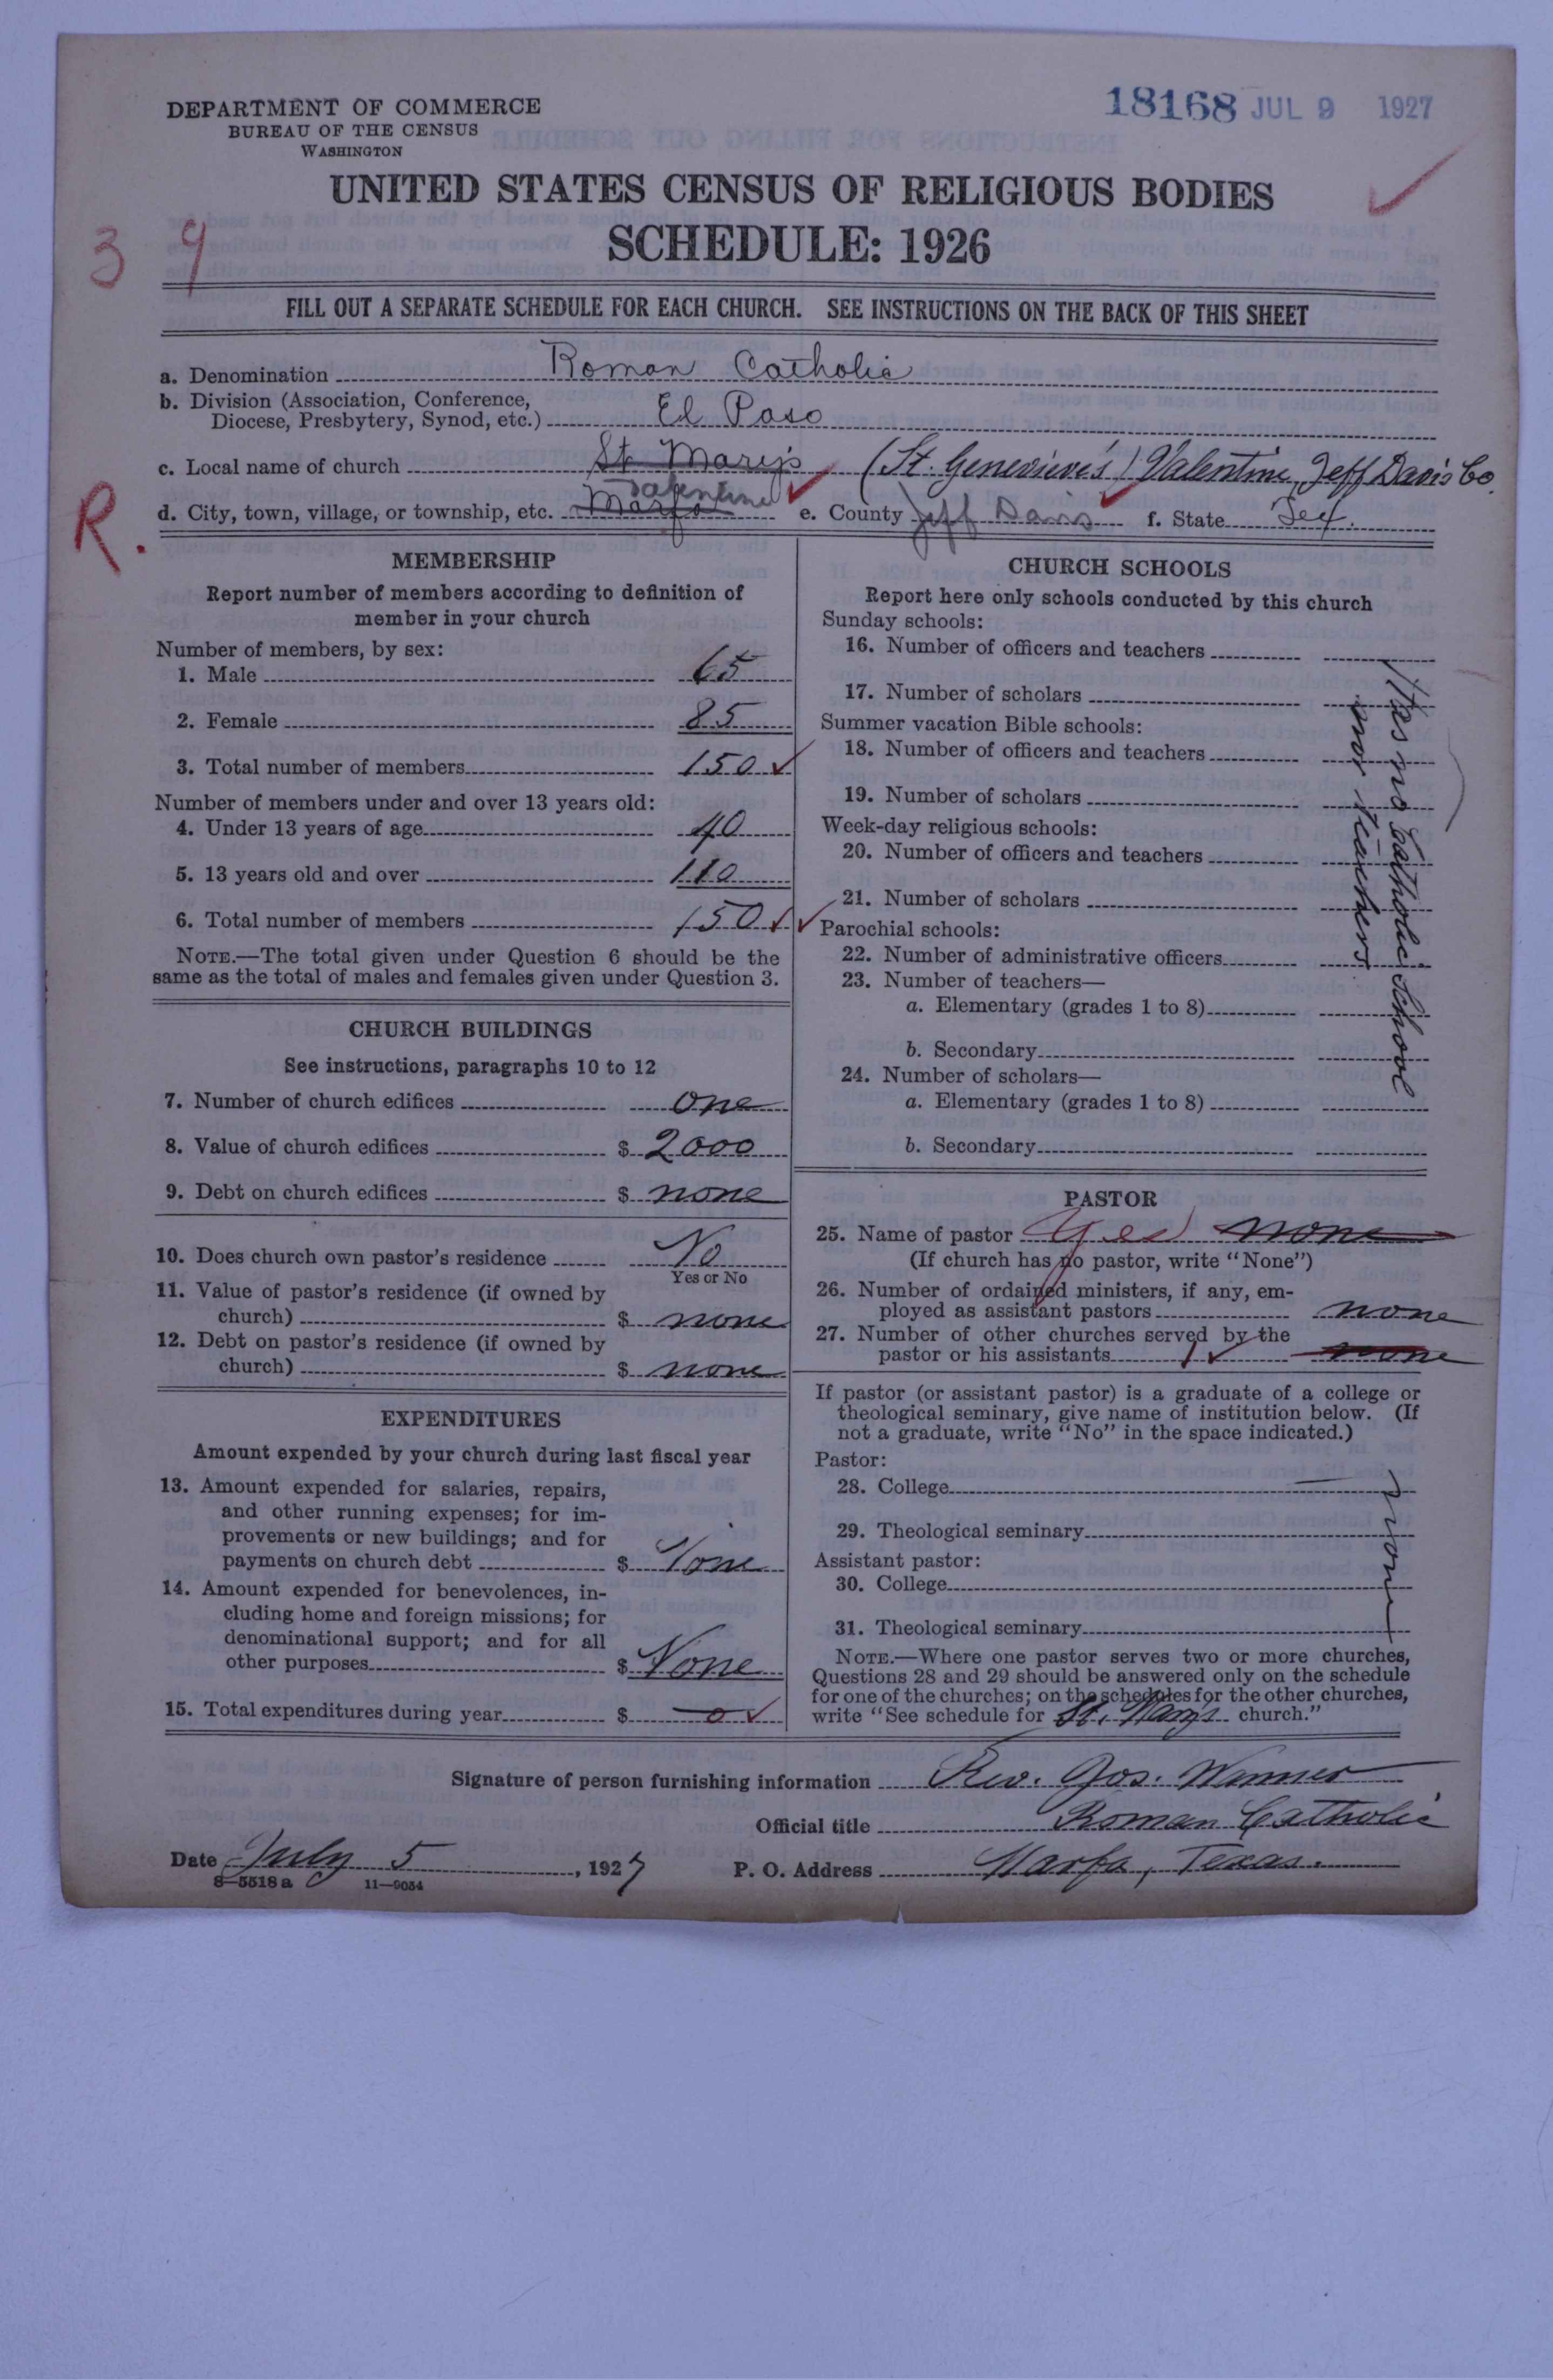 18168 JUL 9 1927
DEPARTMENT OF COMMERCE
BUREAU OF THE CENSUS
WASHINGTON
UNITED STATES CENSUS OF RELIGIOUS BODIES
SCHEDULE: 1926
3 9
FILL OUT A SEPARATE SCHEDULE FOR EACH CHURCH. SEE INSTRUCTIONS ON THE BACK OF THIS SHEET
a. Denomination Roman Catholic
b. Division (Association, Conference,
Diocese, Presbytery, Synod, etc.) El Paso
c. Local name of church St Mary's (St. Genevieve's) Valentine, Jeff Davis Co.
R.
d. City, town, village, or township, etc. Marfa Valentine e. County Jeff Davis f. State Tex.
MEMBERSHIP
Report number of members according to definition of
member in your church
Number of members, by sex:
1. Male 65
2. Female 85
3. Total number of members 150
Number of members under and over 13 years old:
4. Under 13 years of age 40
5. 13 years old and over 110
6. Total number of members 150
NOTE.—The total given under Question 6 should be the
same as the total of males and females given under Question 3.
CHURCH BUILDINGS
See instructions, paragraphs 10 to 12
7. Number of church edifices one
8. Value of church edifices $ 2000
9. Debt on church edifices $ none
10. Does church own pastor's residence No
Yes or No
11. Value of pastor's residence (if owned by
church) $ none
12. Debt on pastor's residence (if owned by
church) $ none
EXPENDITURES
Amount expended by your church during last fiscal year
13. Amount expended for salaries, repairs,
and other running expenses; for im-
provements or new buildings; and for
payments on church debt $ None
14. Amount expended for benevolences, in-
cluding home and foreign missions; for
denominational support; and for all
other purposes $ None
15. Total expenditures during year $ 0
CHURCH SCHOOLS
Report here only schools conducted by this church
Sunday schools:
16. Number of officers and teachers
17. Number of scholars
Summer vacation Bible schools:
18. Number of officers and teachers
19. Number of scholars
Week-day religious schools:
20. Number of officers and teachers
21. Number of scholars
Parochial schools:
22. Number of administrative officers
23. Number of teachers—
a. Elementary (grades 1 to 8)
b. Secondary
24. Number of scholars—
a. Elementary (grades 1 to 8)
b. Secondary
Has no Catholic School
nor teachers
PASTOR
25. Name of pastor Yes none
(If church has no pastor, write "None")
26. Number of ordained ministers, if any, em-
ployed as assistant pastors none
27. Number of other churches served by the
pastor or his assistants 1 none
If pastor (or assistant pastor) is a graduate of a college or
theological seminary, give name of institution below. (If
not a graduate, write "No" in the space indicated.)
Pastor:
28. College
29. Theological seminary
Assistant pastor:
30. College
31. Theological seminary
none
NOTE.—Where one pastor serves two or more churches,
Questions 28 and 29 should be answered only on the schedule
for one of the churches; on the schedules for the other churches,
write "See schedule for St. Mary's church."
Signature of person furnishing information Rev. Jos. Wanner
Official title Roman Catholic
Date July 5, 1927 P. O. Address Marfa, Texas.
8—5518 a 11—9054